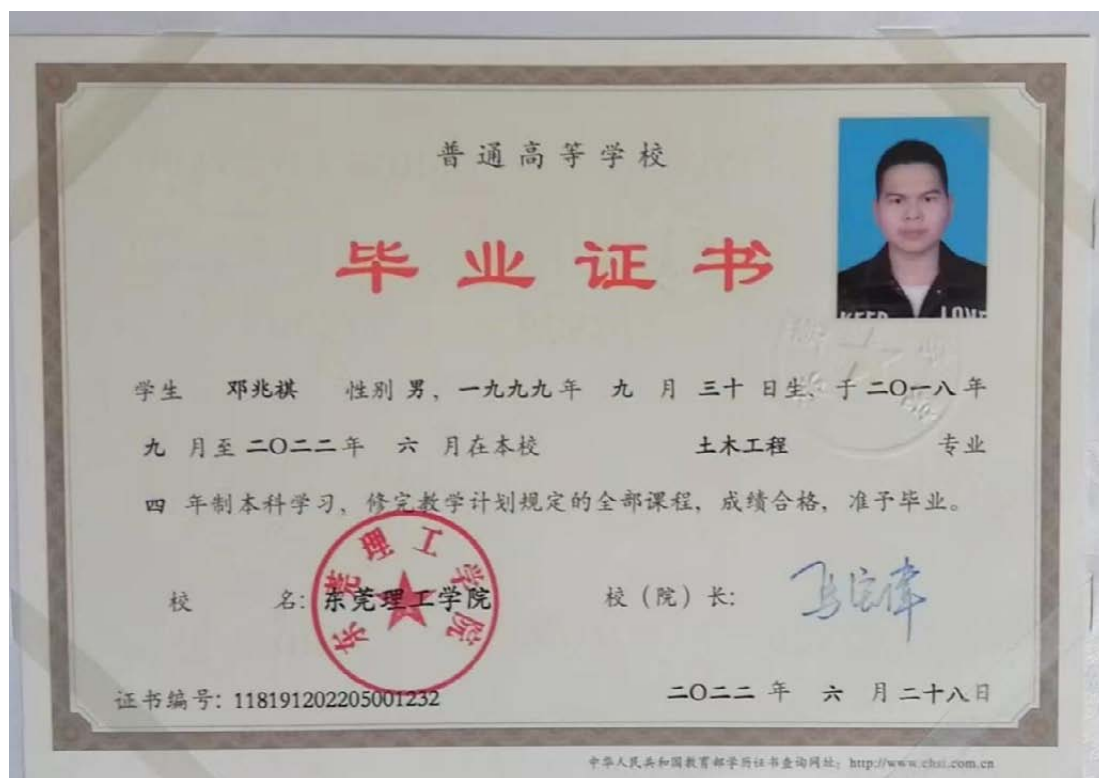 普通高等学校
毕业证书
KEEP LOVE
学生 邓兆祺 性别 男，一九九九年 九 月 三十 日生，于 二〇一八 年
九 月至 二〇二二 年 六 月在本校 土木工程 专业
四 年制本科学习，修完教学计划规定的全部课程，成绩合格，准予毕业。
东莞理工学院
校 名：东莞理工学院 校（院）长：
证书编号：118191202205001232 二〇二二 年 六 月 二十八 日
中华人民共和国教育部学历证书查询网址：http://www.chsi.com.cn